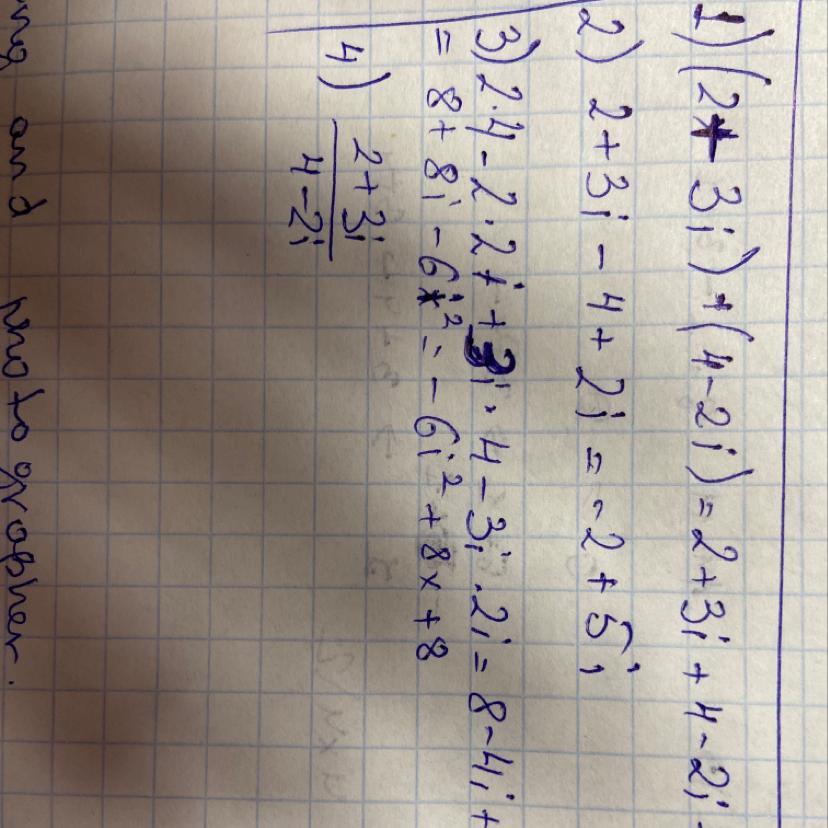 1) (2+3i)+(4-2i)=2+3i+4-2i
2) 2+3i-4+2i=-2+5i
3) 2·4-2·2i+3i·4-3i·2i=8-4i+
=8+8i-6i²=-6i²+8x+8
4) 2+3i
4-2i
and photographer.